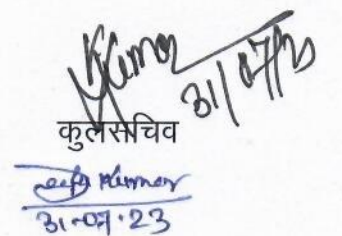 Kumar 31/07/23
कुलसचिव
Kumar
31-07-23